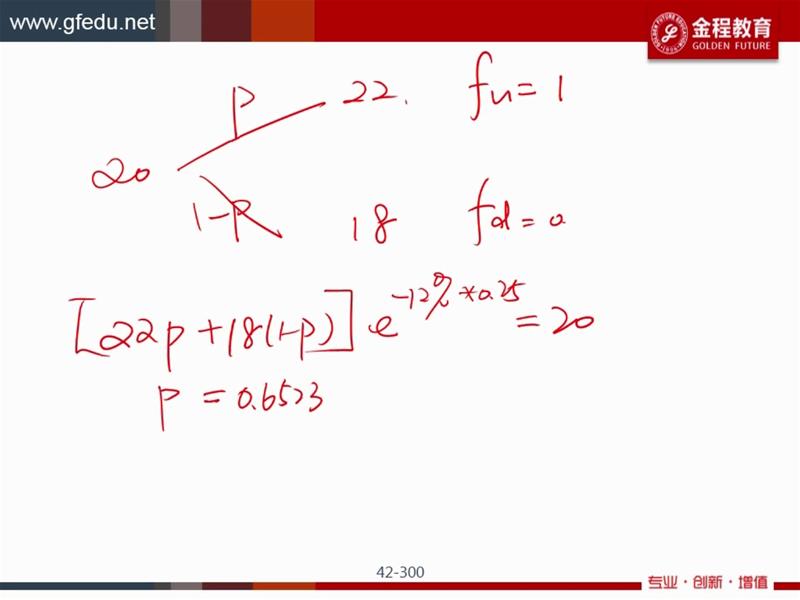 www.gfedu.net
金程教育
GOLDEN FUTURE
p 22. fu = 1
20
1-p 18 fd = 0
[22p + 18(1-p)] e^{-12% * 0.25} = 20
p = 0.6523
42-300
专业·创新·增值